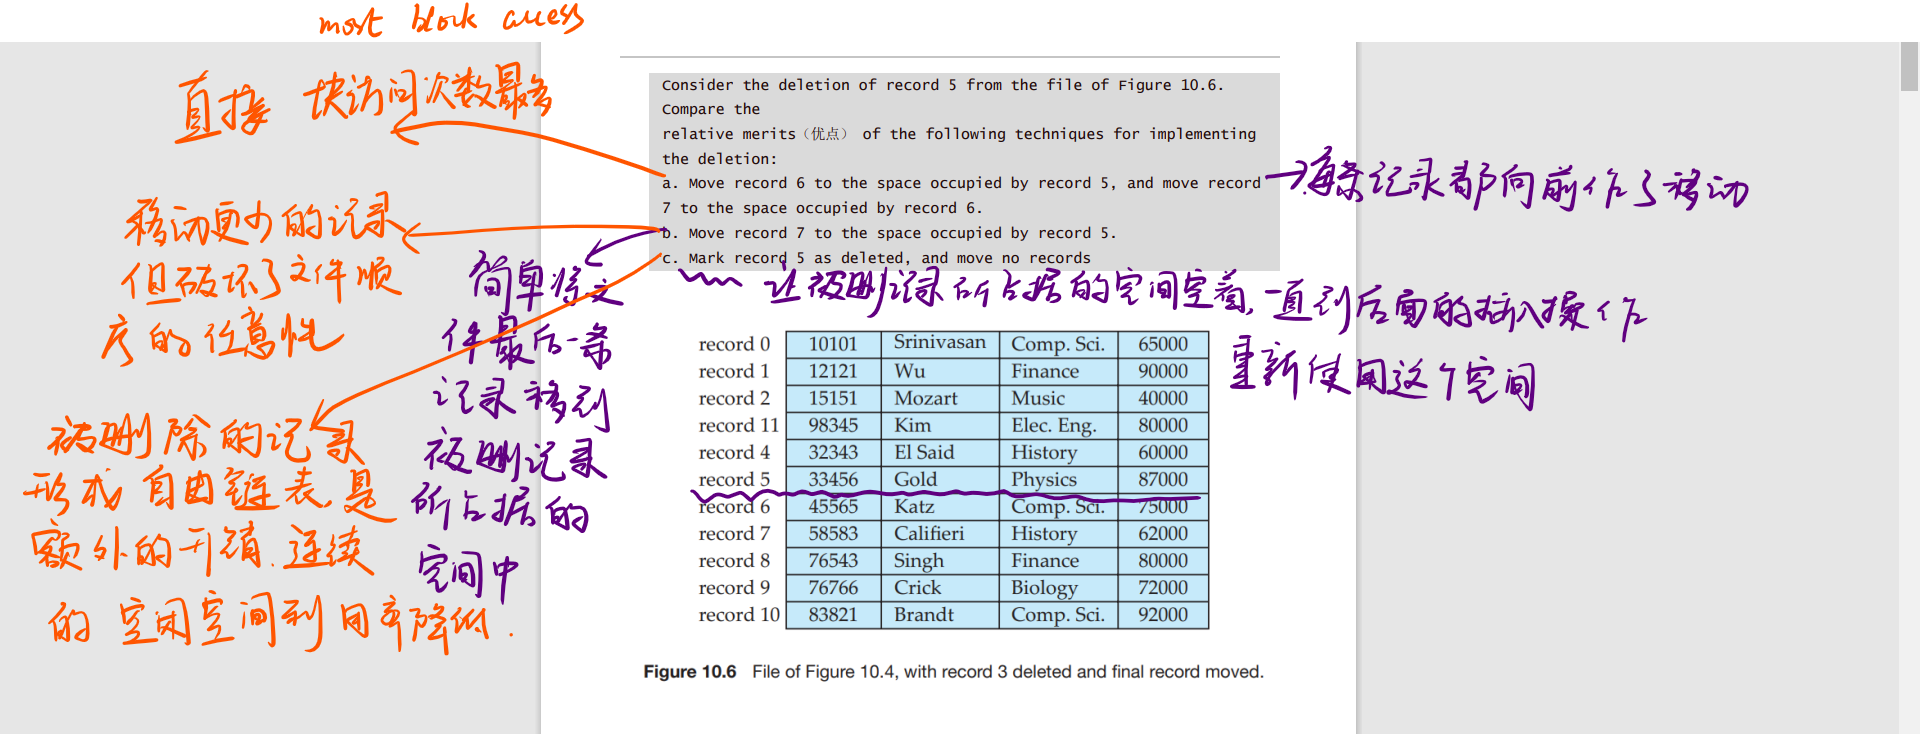 most block access
直接 块访问次数最多
Consider the deletion of record 5 from the file of Figure 10.6.
Compare the
relative merits（优点） of the following techniques for implementing
the deletion:
a. Move record 6 to the space occupied by record 5, and move record
7 to the space occupied by record 6.
b. Move record 7 to the space occupied by record 5.
c. Mark record 5 as deleted, and move no records
每条记录都向前作了移动
移动更少的记录
但破坏了文件顺
序的任意性
简单将文
件最后一条
记录移到
被删记录
所占据的
空间中
让被删记录所占据的空间空着,一直到后面的插入操作
重新使用这个空间
被删除的记录
形成自由链表,是
额外的开销.连续
的空闲空间利用率降低.
record 0 10101 Srinivasan Comp. Sci. 65000
record 1 12121 Wu Finance 90000
record 2 15151 Mozart Music 40000
record 11 98345 Kim Elec. Eng. 80000
record 4 32343 El Said History 60000
record 5 33456 Gold Physics 87000
record 6 45565 Katz Comp. Sci. 75000
record 7 58583 Califieri History 62000
record 8 76543 Singh Finance 80000
record 9 76766 Crick Biology 72000
record 10 83821 Brandt Comp. Sci. 92000
Figure 10.6 File of Figure 10.4, with record 3 deleted and final record moved.